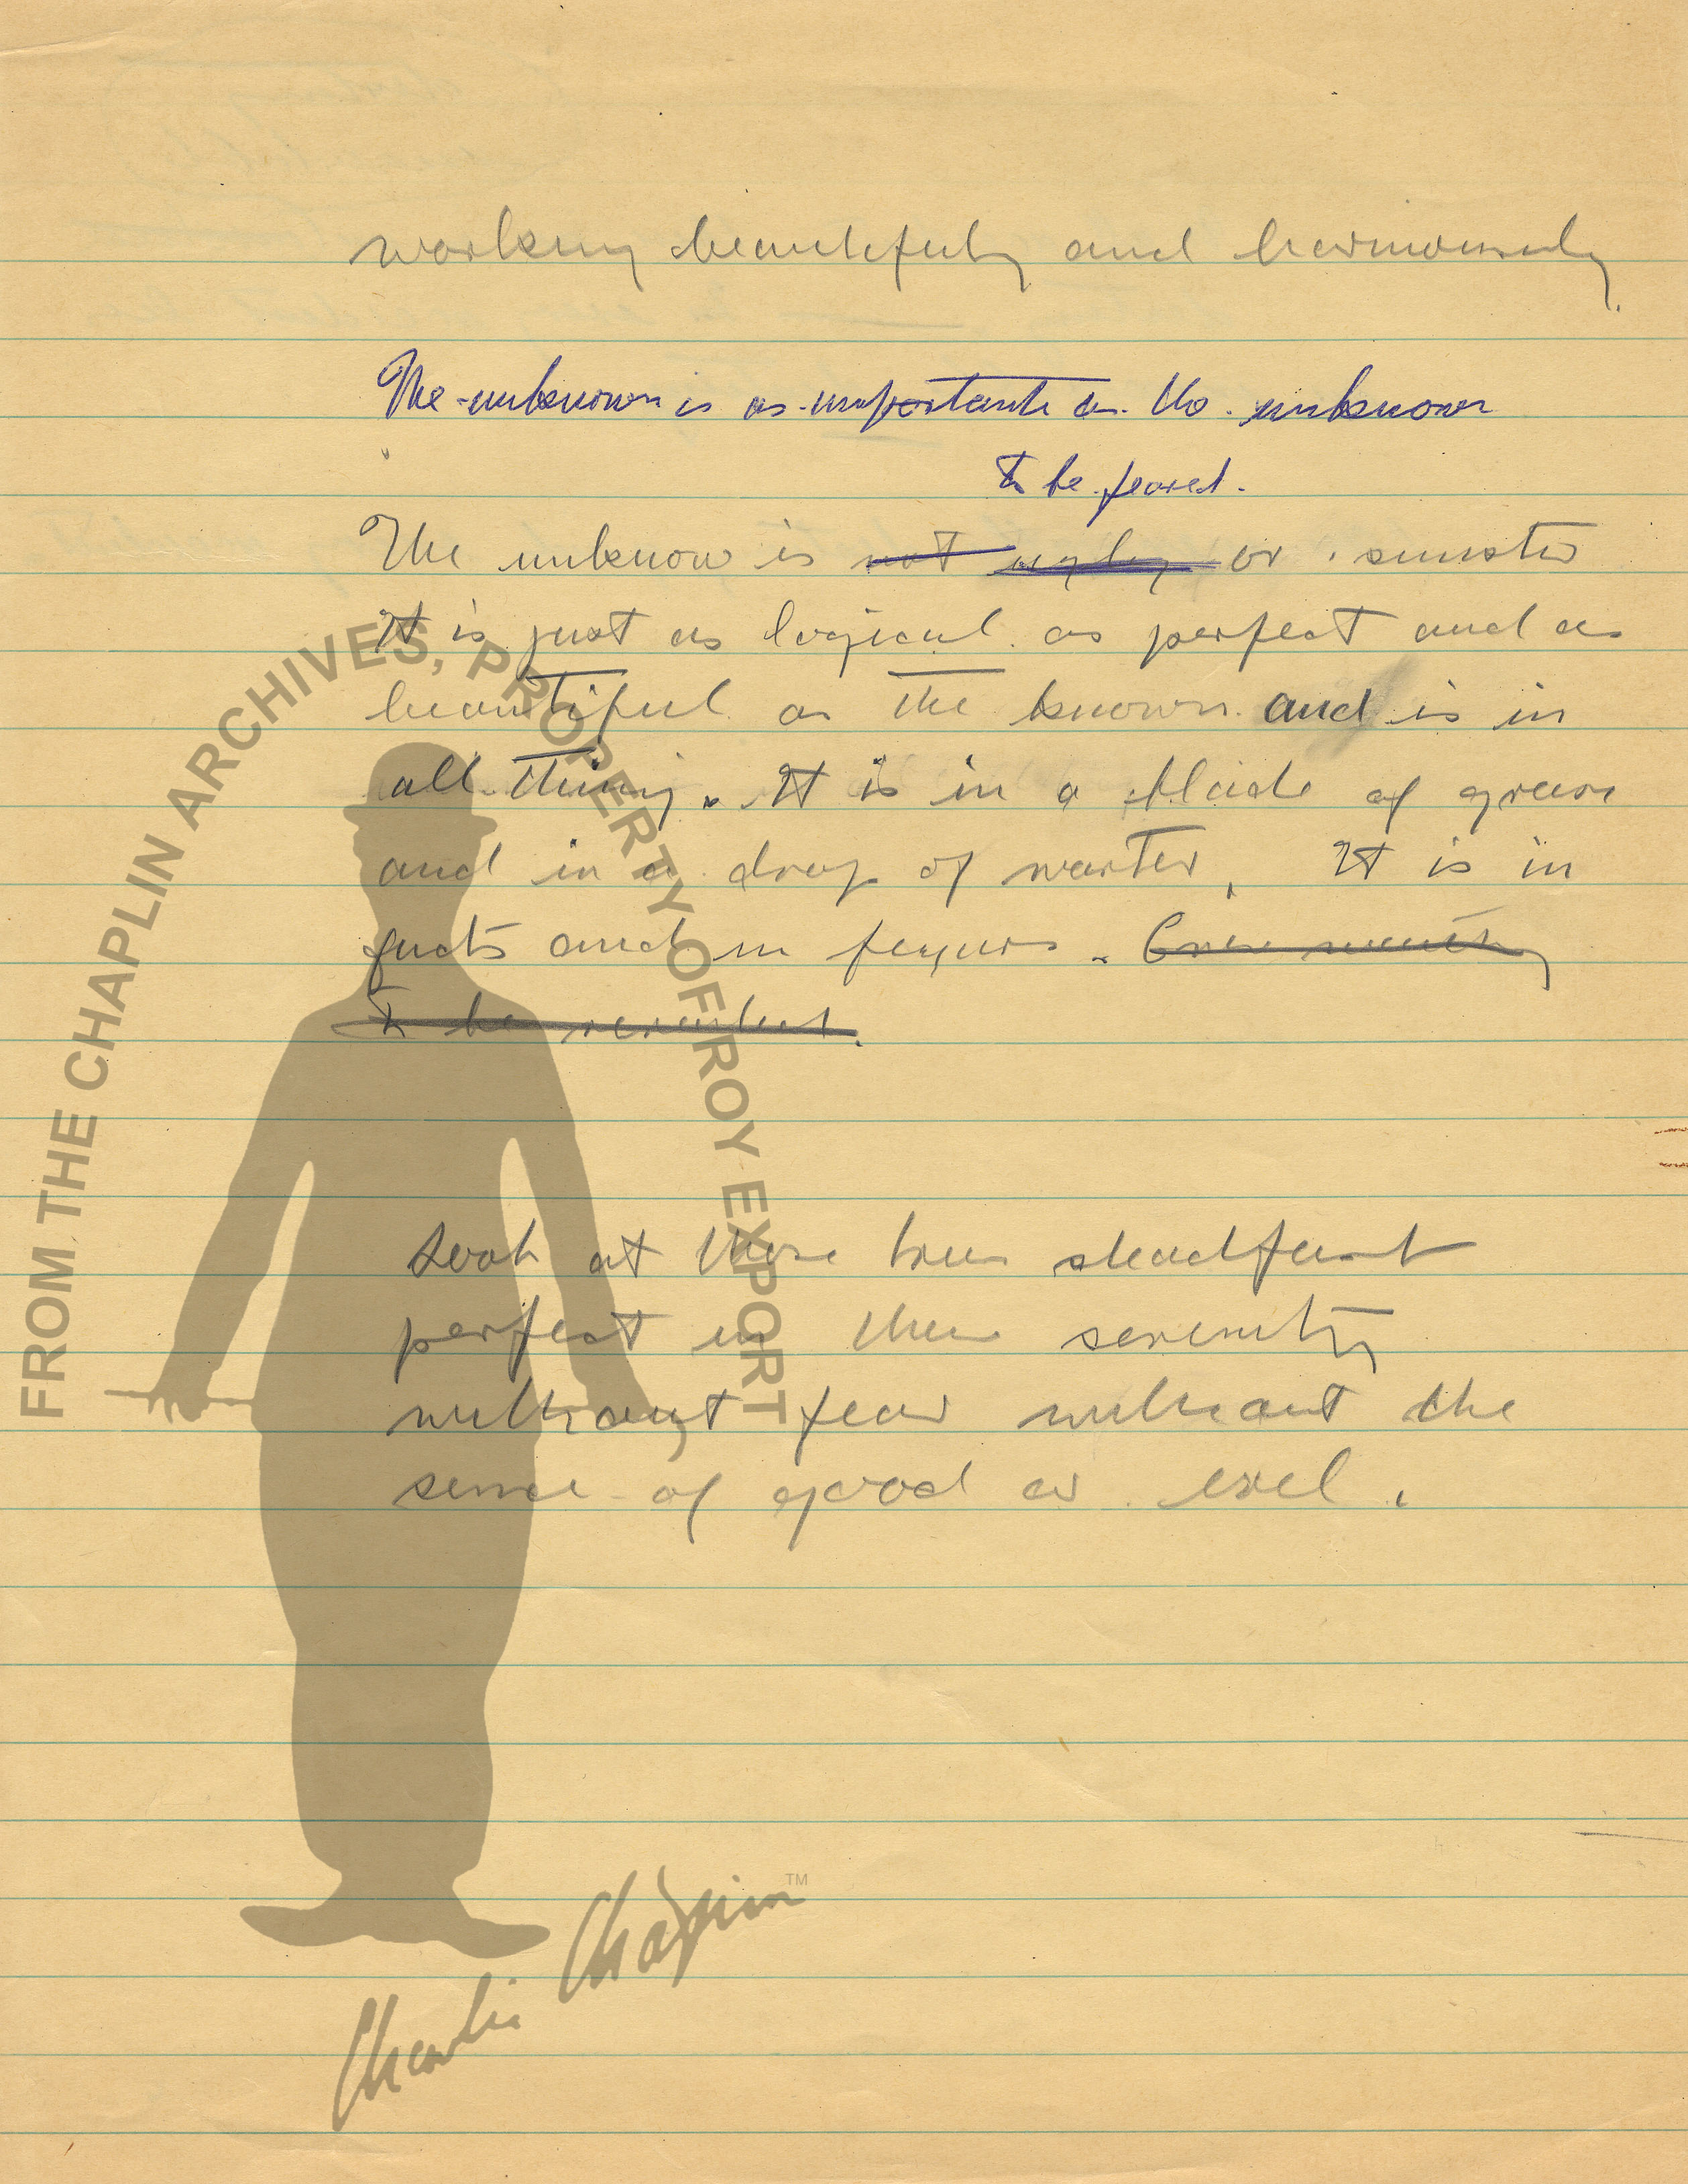 working beautifuly and harmoniously.
The unknown is as importante as the unknown
to be feared.
The unknow is not ugly or sinister
It is just as logical as perfect and as
beautiful as the known and is in
all things. It is in a blade of grass
and in a drop of warter, It is in
facts and in feguers. Ever
to be revealed.
Look at those trees steadfast
perfect in their serenity
without fear without the
sense of good or evel.
FROM THE CHAPLIN ARCHIVES, PROPERTY OF ROY EXPORT
Charlie Chaplin™